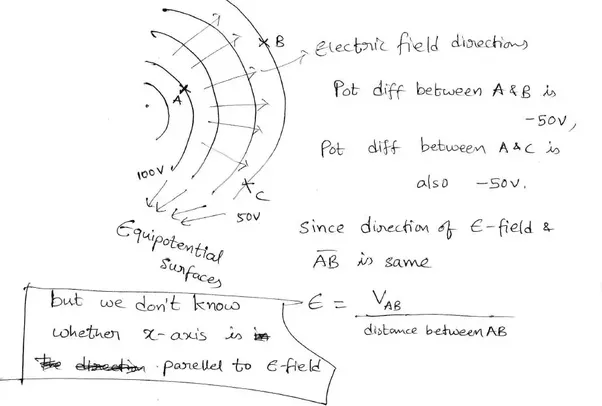 B
Electric field directions
A
Pot diff between A & B is
-50V,
Pot diff between A & C is
also -50V.
100V
C
50V
Equipotential
Surfaces
Since direction of E-field &
AB is same
E = VAB
distance between AB
but we don't know
whether x-axis is
parellel to E-field